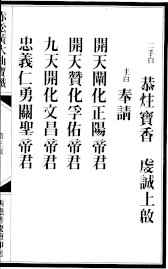 二手白 恭炷寶香 虔誠上啟
主白 奉請
開天闡化正陽帝君
開天贊化孚佑帝君
九天開化文昌帝君
忠義仁勇關聖帝君
赤松黃大仙寶懺